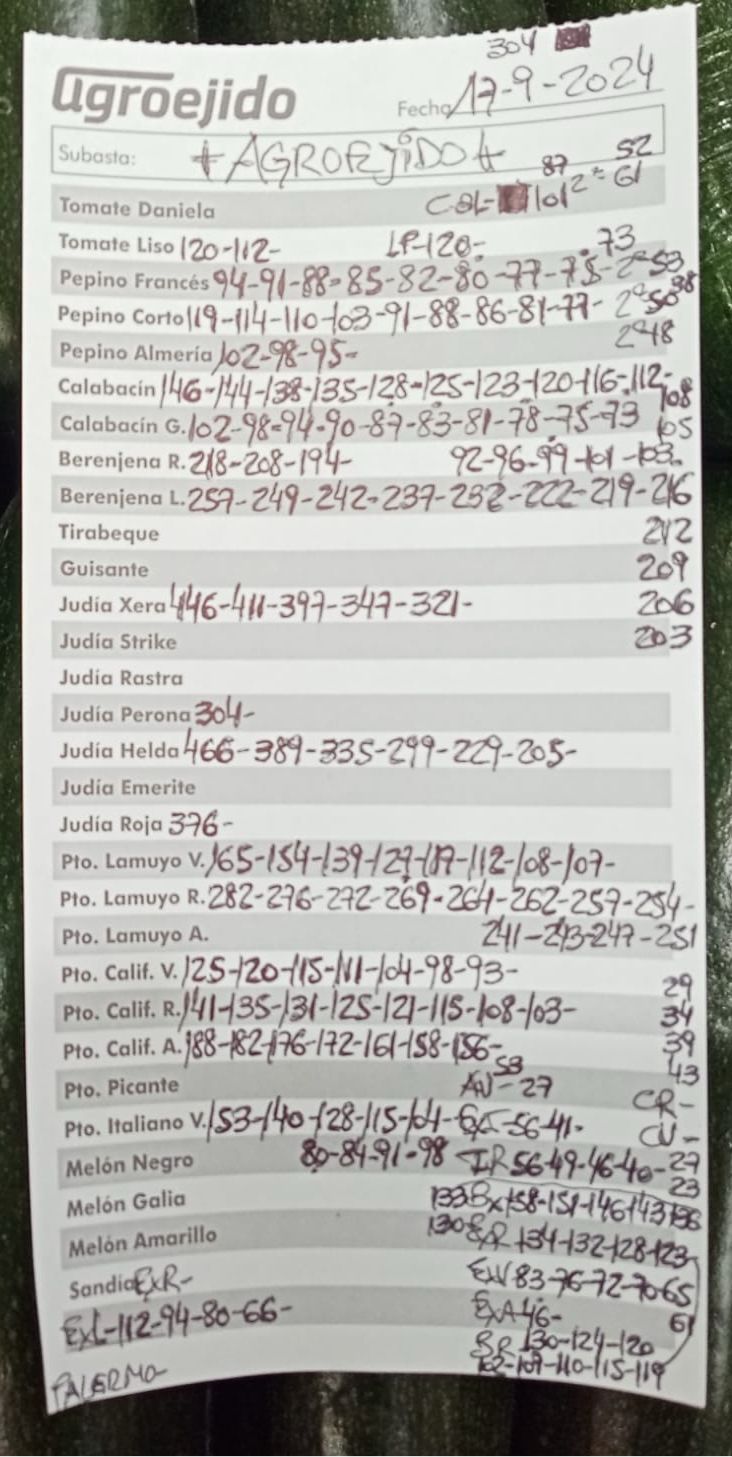 304
agroejido
Fecha 17-9-2024
Subasta: +AGROEJIDO+
87 52
Tomate Daniela COL- 101 2ª 61
Tomate Liso 120-112- LP-120- 73
Pepino Francés 94-91-88-85-82-80-77-75-2ª53
Pepino Corto 119-114-110-103-91-88-86-81-77- 2ª50 38
Pepino Almería 102-98-95- 2ª48
Calabacín 146-144-138-135-128-125-123-120-116-112-108
Calabacín G. 102-98-94-90-87-83-81-78-75-73 105
Berenjena R. 218-208-194- 92-96-99-101-103
Berenjena L. 257-249-242-237-232-222-219-216
Tirabeque 212
Guisante 209
Judía Xera 446-411-397-347-321- 206
Judía Strike 203
Judía Rastra
Judía Perona 304-
Judía Helda 466-389-335-299-229-205-
Judía Emerite
Judía Roja 376-
Pto. Lamuyo V. 165-154-139-127-117-112-108-107-
Pto. Lamuyo R. 282-276-272-269-264-262-257-254-
Pto. Lamuyo A. 241-243-247-251
Pto. Calif. V. 125-120-115-111-104-98-93-
29
Pto. Calif. R. 141-135-131-125-121-115-108-103-
34
Pto. Calif. A. 188-182-176-172-161-158-156-
39
53 43
Pto. Picante AV-27 CR-
Pto. Italiano V. 153-140-128-115-104- 56-41- CV-
Melón Negro 80-84-91-98 IR 56-49-46-40-27
23
Melón Galia 133 Bx 158-151-146-143 136
Melón Amarillo 130 134-132-128-123
Sandía ExR- ExV 83-76-72-70-65
ExL-112-94-80-66- ExA 46- 61
BR 130-124-120
PALERMO- 102-107-110-115-119